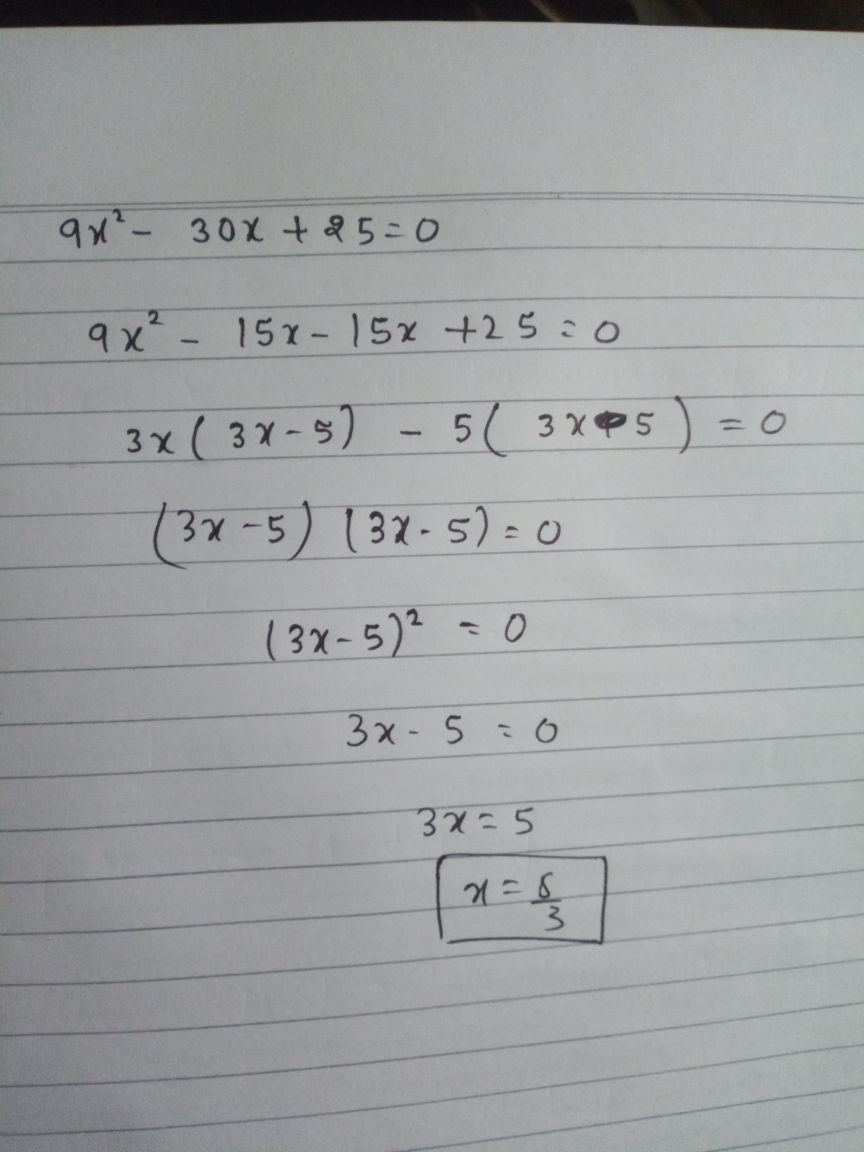 9x² - 30x + 25 = 0
9x² - 15x - 15x + 25 = 0
3x ( 3x - 5 ) - 5 ( 3x - 5 ) = 0
(3x - 5) (3x - 5) = 0
(3x - 5)² = 0
3x - 5 = 0
3x = 5
x = 5/3